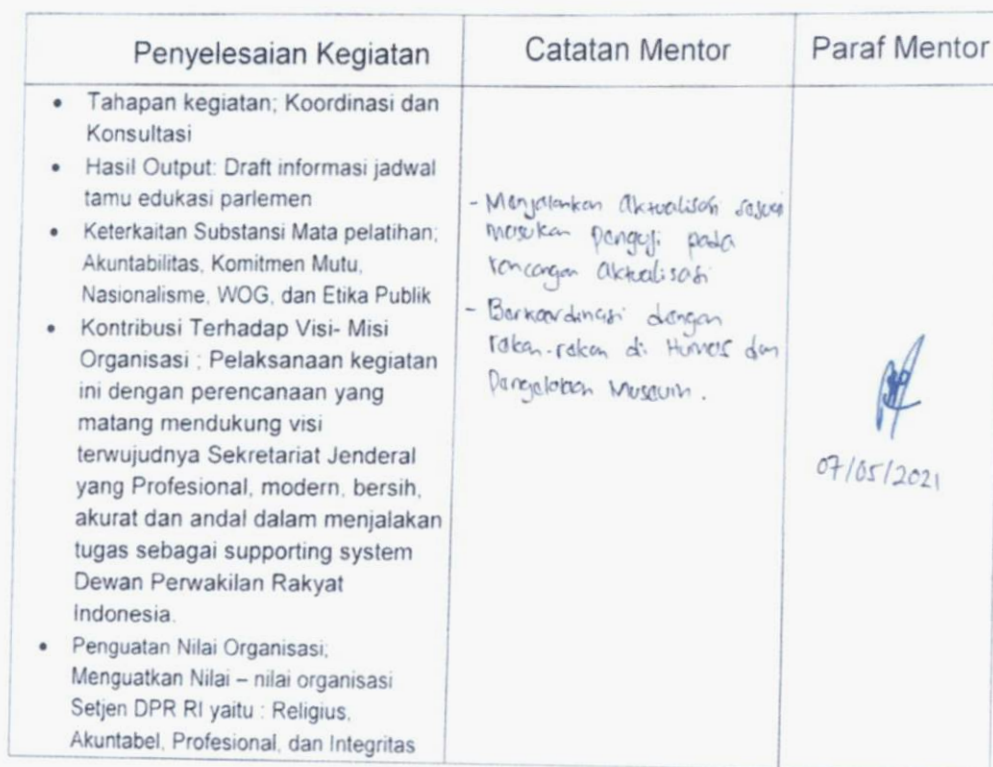 Penyelesaian Kegiatan
Catatan Mentor
Paraf Mentor
• Tahapan kegiatan; Koordinasi dan
Konsultasi
• Hasil Output: Draft informasi jadwal
tamu edukasi parlemen
• Keterkaitan Substansi Mata pelatihan;
Akuntabilitas, Komitmen Mutu,
Nasionalisme, WOG, dan Etika Publik
• Kontribusi Terhadap Visi- Misi
Organisasi ; Pelaksanaan kegiatan
ini dengan perencanaan yang
matang mendukung visi
terwujudnya Sekretariat Jenderal
yang Profesional, modern, bersih,
akurat dan andal dalam menjalakan
tugas sebagai supporting system
Dewan Perwakilan Rakyat
Indonesia.
• Penguatan Nilai Organisasi;
Menguatkan Nilai – nilai organisasi
Setjen DPR RI yaitu : Religius,
Akuntabel, Profesional, dan Integritas
- Menjalankan aktualisasi sesuai
masukan penguji pada
rancangan aktualisasi
- Berkoordinasi dengan
rekan-rekan di Humas dan
Pengelolaan Museum.
07/05/2021